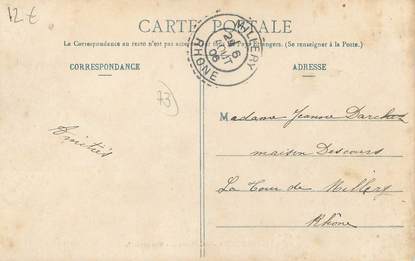 12 €
CARTE POSTALE
La Correspondance au recto n'est pas acceptée par tous les Pays Etrangers. (Se renseigner à la Poste.)
CORRESPONDANCE
ADRESSE
MILLERY
6
AOUT
06
RHÔNE
73
Amitiés
Madame Jeanne
maison Descours
La Tour de Millery
Rhône